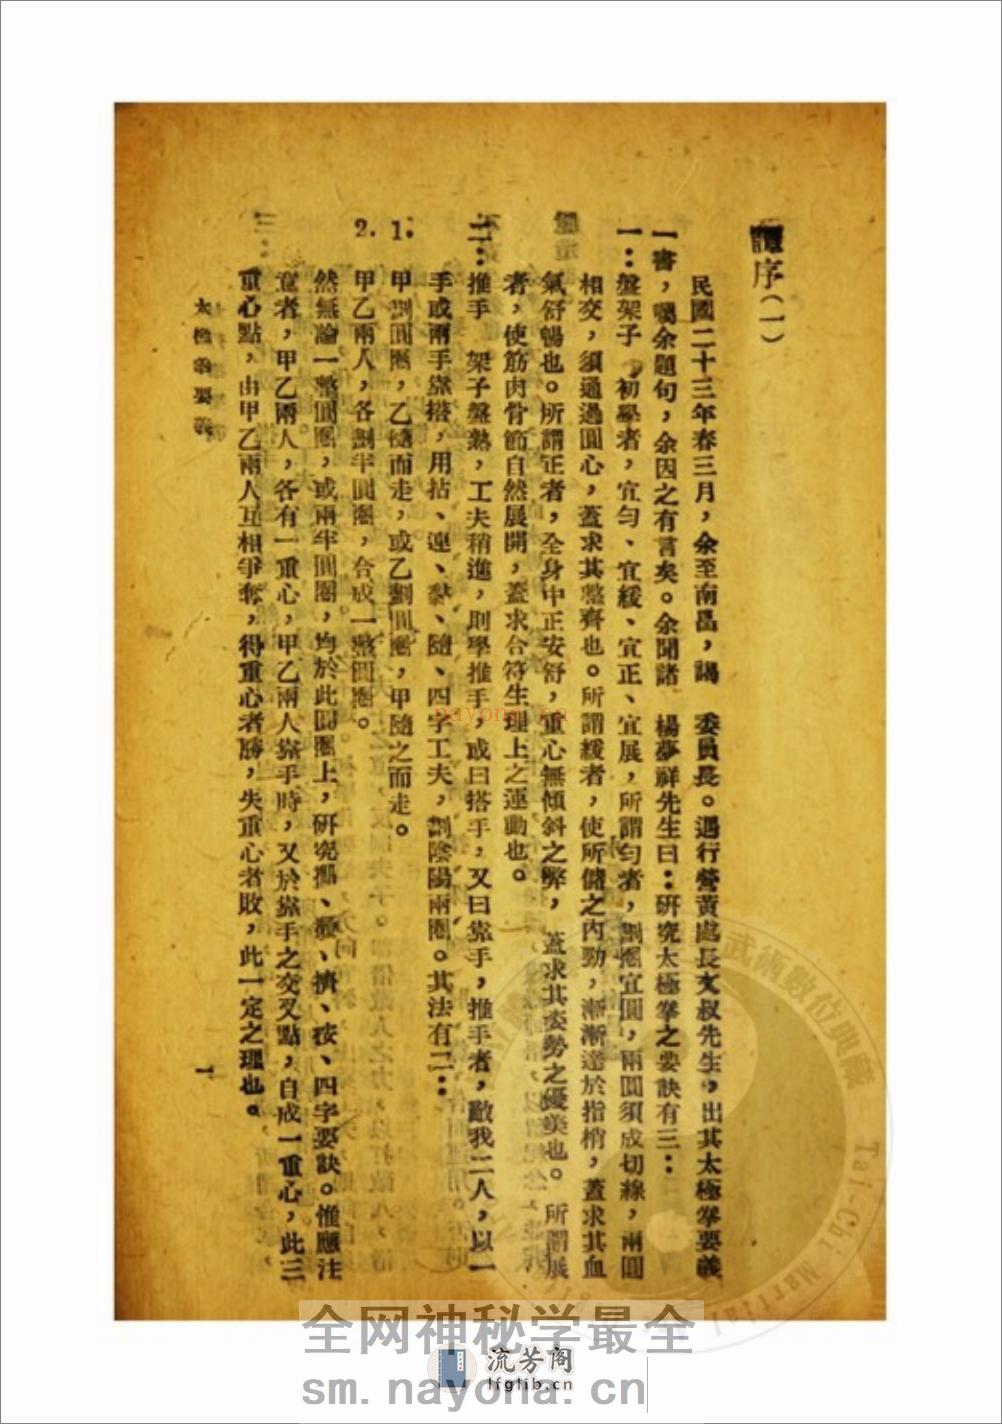 序(一)
民國二十三年春三月,余至南昌,謁 委員長。遇行營黃處長文叔先生,出其太極拳要義
一書,囑余題句,余因之有言矣。余聞諸 楊夢祥先生曰:研究太極拳之要訣有三:
一:盤架子,初學者,宜勻、宜緩、宜正、宜展,所謂勻者,劃圈宜圓,兩圓須成切線,兩圓
相交,須通過圓心,蓋求其整齊也。所謂緩者,使所儲之內勁,漸漸達於指梢,蓋求其血
氣舒暢也。所謂正者,全身中正安舒,重心無傾斜之弊, 蓋求其姿勢之優美也。 所謂展
者,使筋肉骨節自然展開,蓋求合符生理上之運動也。
二:推手 架子盤熟,工夫稍進,則學推手,或曰搭手,又曰靠手,推手者,敵我二人,以一
手或兩手靠搭,用拈、連、黏、隨、四字工夫,劃陰陽兩圈。其法有二:
1. 甲劃圓圈,乙隨而走,或乙劃圓圈,甲隨之而走。
2. 甲乙兩人,各劃半圓圈,合成一整圓圈。
然無論一整圓圈,或兩半圓圈,均於此圓圈上,研究掤、履、擠、按、四字要訣。惟應注
意者,甲乙兩人,各有一重心,甲乙兩人靠手時,又於靠手之交叉點,自成一重心,此三
重心點,由甲乙兩人互相爭奪,得重心者勝,失重心者敗,此一定之理也。
太極拳要義
一
nayona.cn
武術數位典藏
Tai-Chi Martial
全网神秘学最全
流芳阁
lfglib.cn
sm.nayona.cn